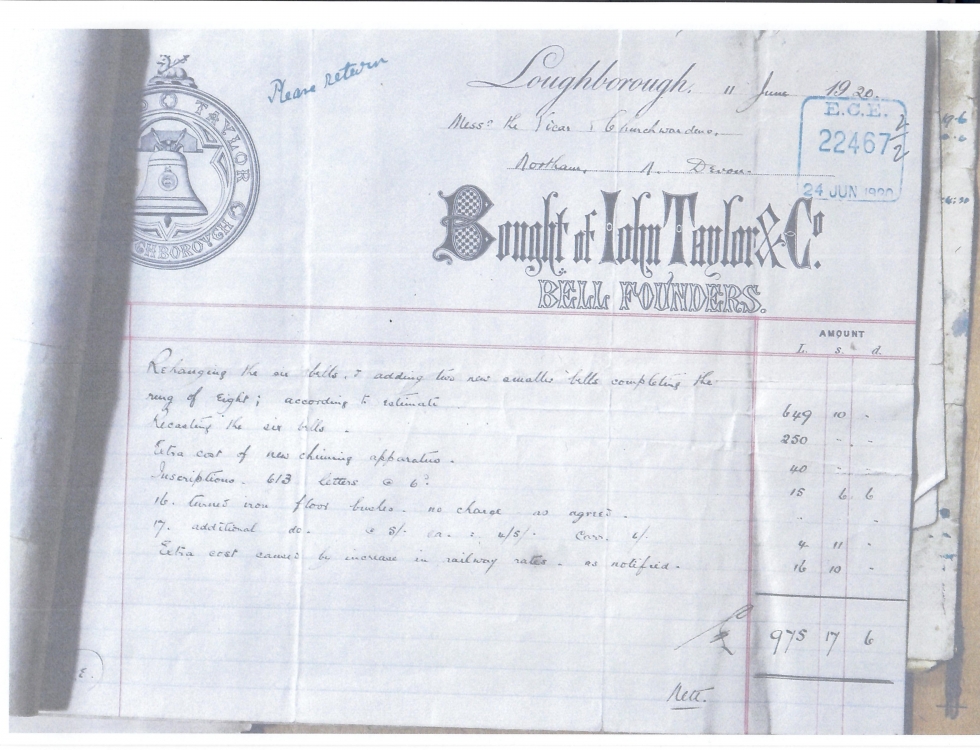 Please return
Loughborough. 11 June 1920.
E.C.E.
22467 2/2
24 JUN 1920
Messrs the Vicar & Churchwardens,
Northam, N. Devon.
D O TAYLOR & C
GHBOROUGH
Bought of John Taylor & Co.
BELL FOUNDERS.
AMOUNT
L. s. d.
Rehanging the six bells, & adding two new smaller bells completing the
ring of Eight; according to estimate 649 10 -
Recasting the six bells. 250 - -
Extra cost of new chiming apparatus. 40 - -
Inscriptions. 613 letters @ 6d. 15 6 6
16. turned iron floor bushes. no charge as agreed. - - -
17. additional do. @ 5/- ea. = 4/5/- Carr. 6/- 4 11 -
Extra cost caused by increase in railway rates. as notified. 16 10 -
£ 975 17 6
Nett.
E.